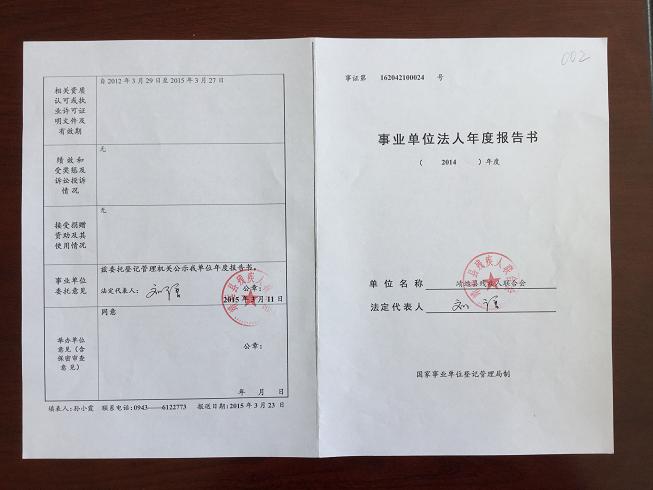 自 2012 年 3 月 29 日至 2015 年 3 月 27 日
相关资质
认可或执
业许可证
明文件及
有效期
无
绩 效 和
受奖惩及
诉讼投诉
情 况
无
接受捐赠
资助及其
使用情况
兹委托登记管理机关公示我单位年度报告书。
事业单位
委托意见
法定代表人：
公章：
2015 年 3 月 11 日
同意
举办单位
意见（含
保密审查
意 见）
公章：
年 月 日
填表人：孙小霞 联系电话：0943——6122773 报送日期：2015 年 3 月 23 日
002
事证第 162042100024 号
事业单位法人年度报告书
（ 2014 ）年度
单 位 名 称 靖远县残疾人联合会
法定代表人
国家事业单位登记管理局制